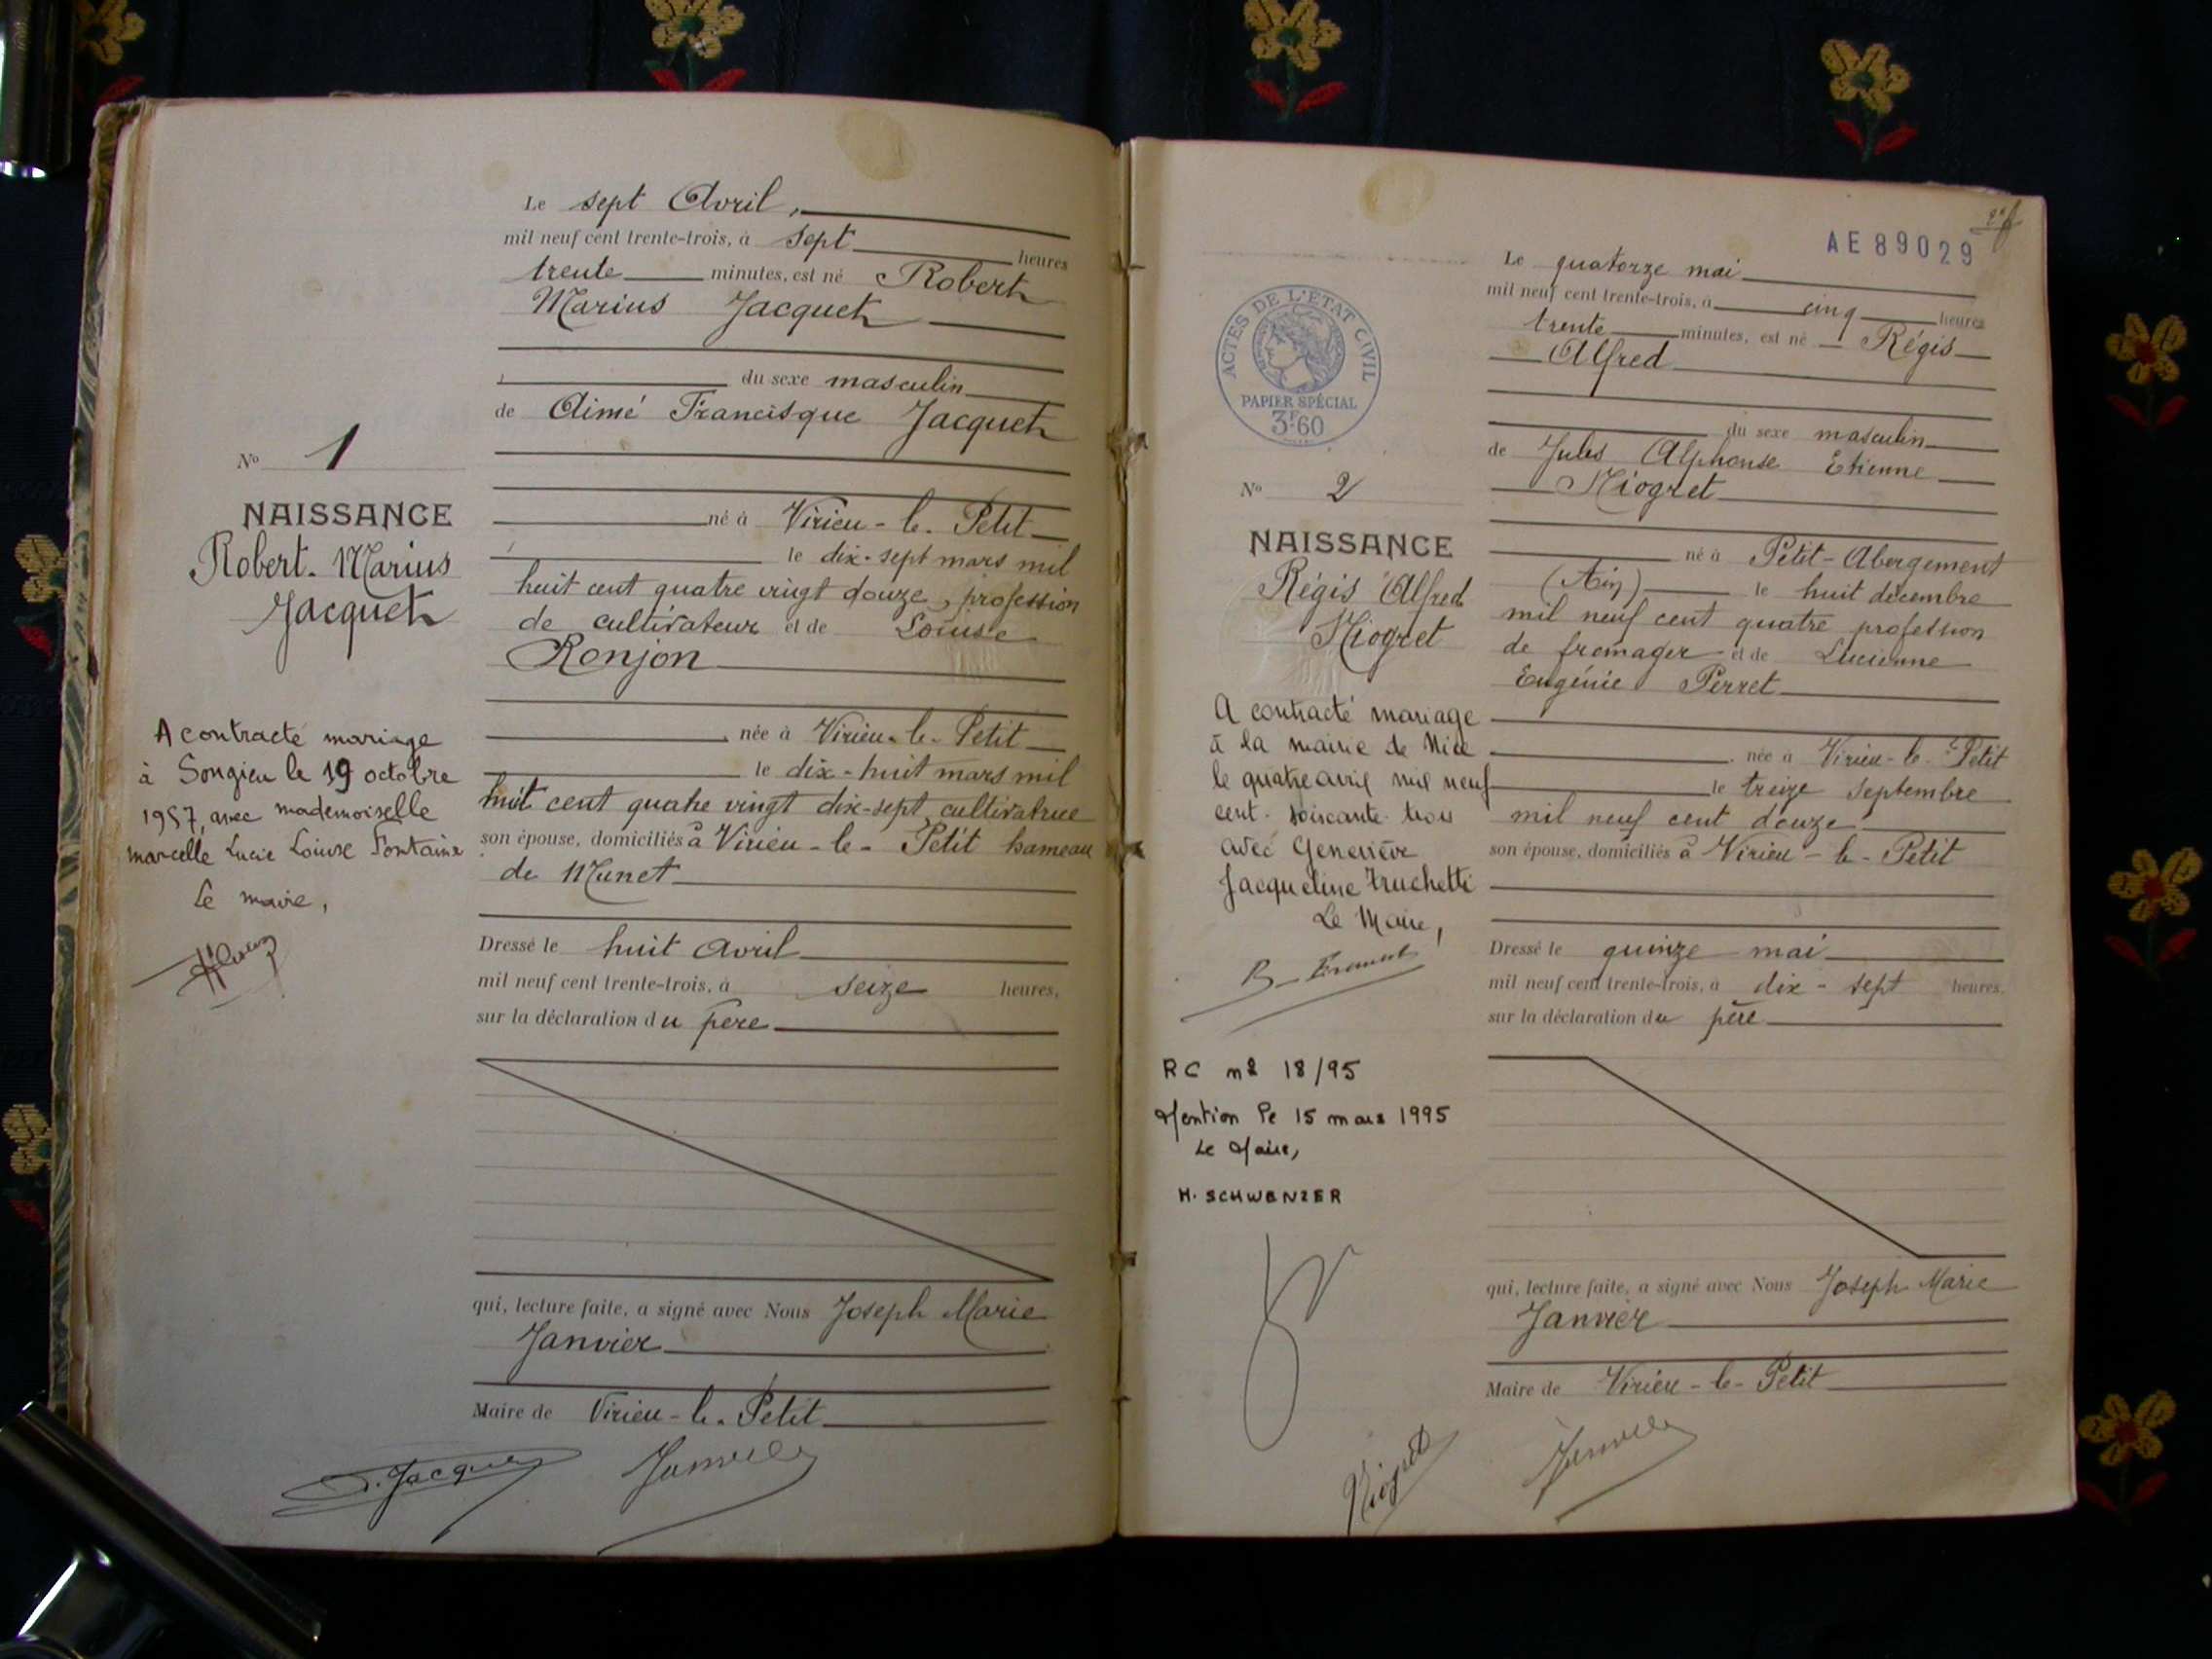 Le sept Avril,
mil neuf cent trente-trois, à sept heures
trente minutes, est né Robert
Marius Jacquet
du sexe masculin
de Aimé Francisque Jacquet
No 1
NAISSANCE
Robert-Marius
Jacquet
né à Virieu-le-Petit
le dix-sept mars mil
huit cent quatre vingt douze, profession
de cultivateur et de Louise
Ronjon
née à Virieu-le-Petit
le dix-huit mars mil
huit cent quatre vingt dix-sept, cultivatrice
son épouse, domiciliés à Virieu-le-Petit hameau
de Munet
A contracté mariage
à Songieu le 19 octobre
1957, avec mademoiselle
marcelle Lucie Louise Fontaine
Le maire,
Dressé le huit avril
mil neuf cent trente-trois, à seize heures,
sur la déclaration du père
qui, lecture faite, a signé avec Nous Joseph Marie
Janvier
Maire de Virieu-le-Petit
Jacquet Janvier
AE89029
Le quatorze mai
mil neuf cent trente-trois, à cinq heures
trente minutes, est né Régis
Alfred
ACTES DE L'ETAT CIVIL
PAPIER SPÉCIAL
3F60
du sexe masculin
de Jules Alphonse Etienne
Niogret
No 2
NAISSANCE
Régis Alfred
Niogret
né à Petit-Abergement
(Ain) le huit décembre
mil neuf cent quatre profession
de fromager et de Lucienne
Eugénie Perret
née à Virieu-le-Petit
le treize Septembre
mil neuf cent douze
son épouse, domiciliés à Virieu-le-Petit
A contracté mariage
à la mairie de Nice
le quatre avril mil neuf
cent soixante trois
avec Geneviève
Jacqueline Truchetti
Le Maire,
Dressé le quinze mai
mil neuf cent trente-trois, à dix-sept heures,
sur la déclaration du père
RC n° 18/95
Mention le 15 mars 1995
Le Maire,
H. SCHWENZER
qui, lecture faite, a signé avec Nous Joseph Marie
Janvier
Maire de Virieu-le-Petit
Niogret Janvier